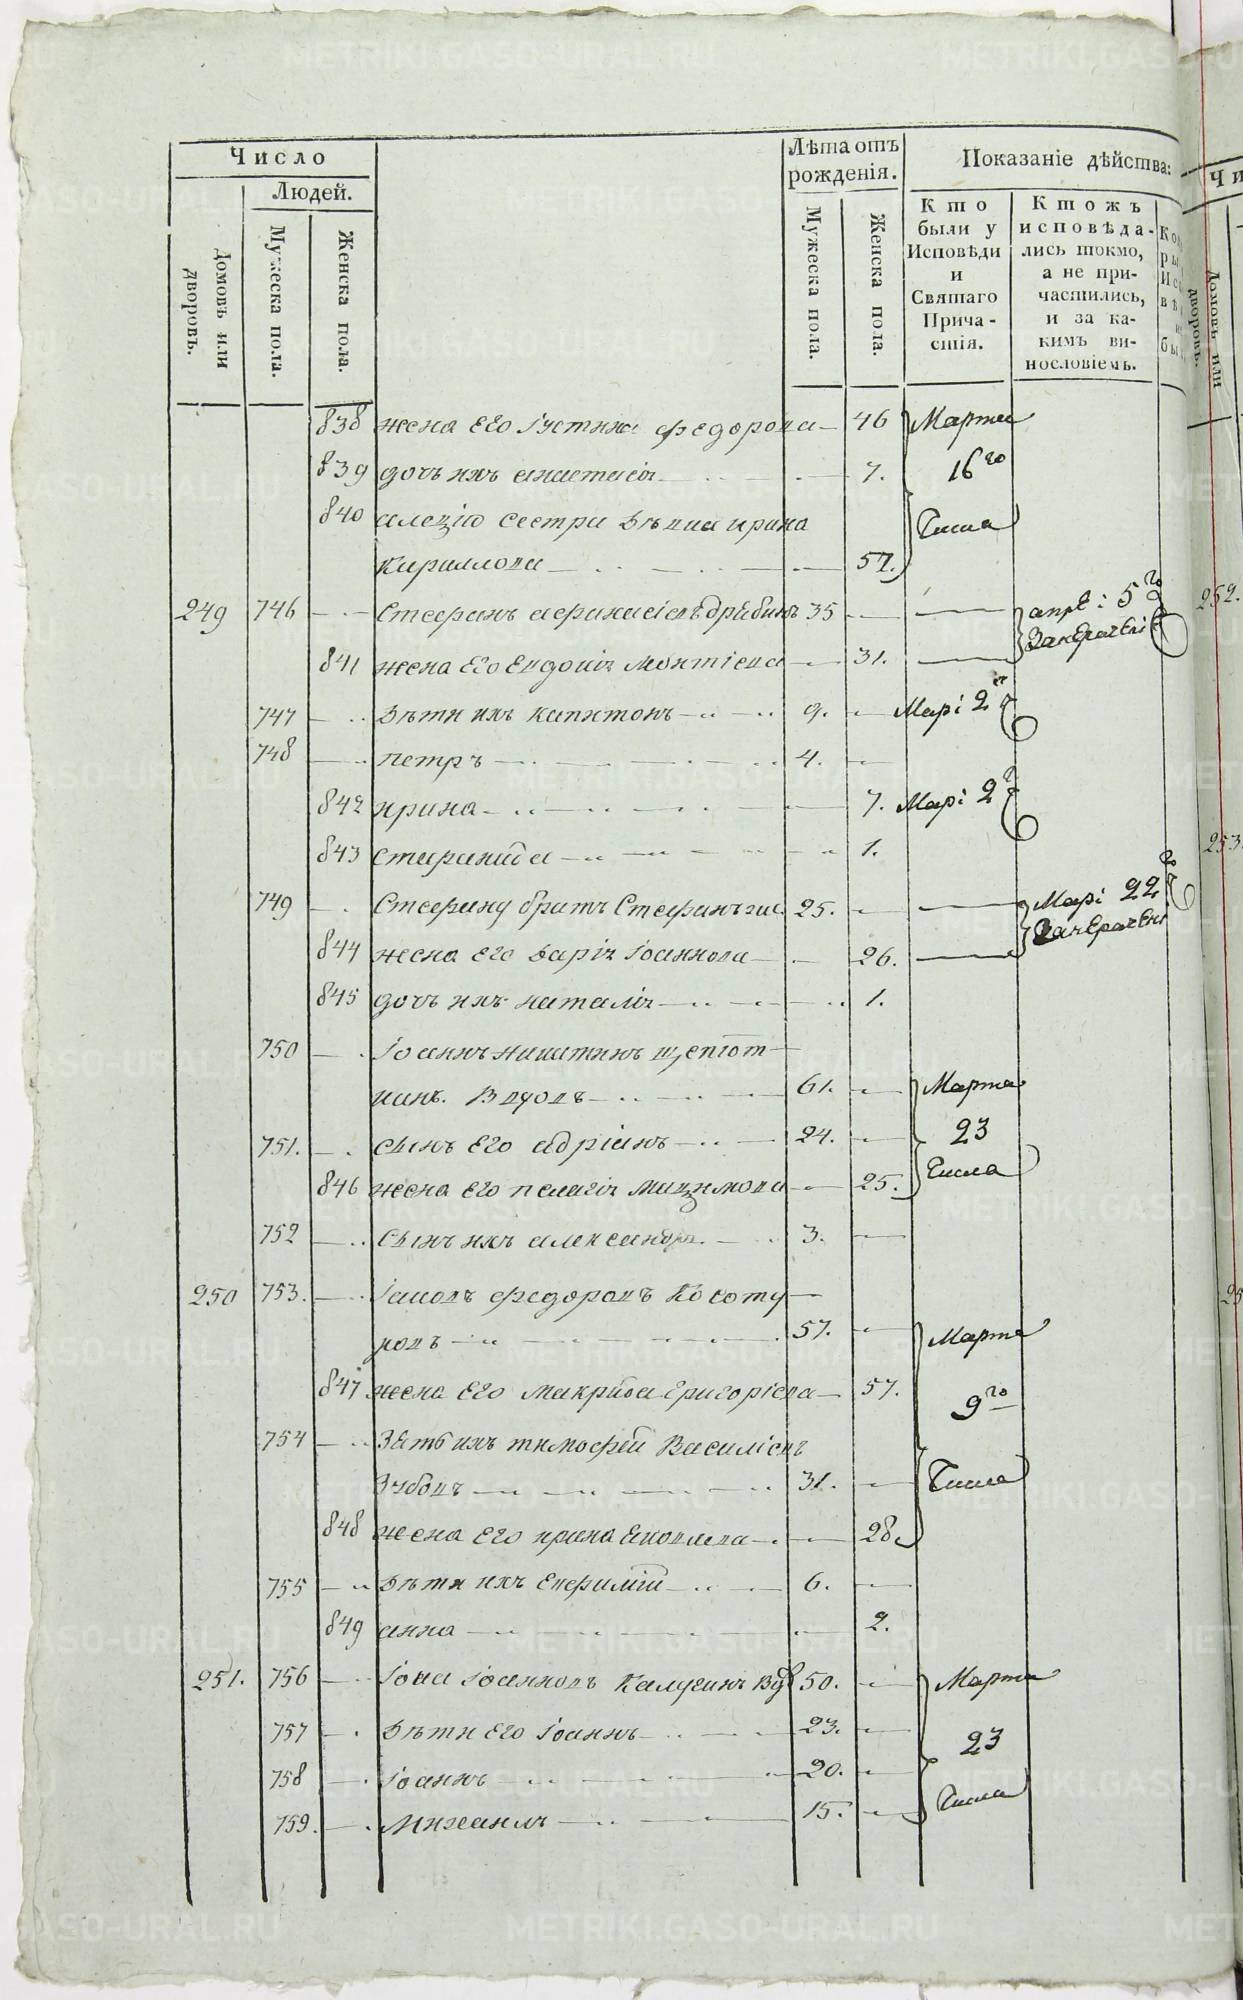 Число
Людей.
Домовъ или дворовъ.
Мужеска пола.
Женска пола.
Лѣта отъ рожденія.
Мужеска пола.
Женска пола.
Показаніе дѣйства:
Кто были у Исповѣди и Святаго Причастія.
Кто жъ исповѣдались токмо, а не причастились, и за какимъ винословіемъ.
838 жена его Іустина Федорова 46 Марта
839 дочь ихъ анастасія 7. 16го
840 алеѯію сестра дѣвка ирина Числа
Кириллова 57.
249 746 Стефанъ афанасіевъ 35 апрѣ: 5го
841 жена его Евдокія 31.
747 дѣти ихъ капитонъ 9. Марі 2
748 петръ 4.
842 ирина 7. Марі 2
843 стефанида 1.
749 Стефану братъ Стефанъ же 25. Марі 22
844 жена его дарія Іоаннова 26.
845 дочь ихъ наталія 1.
750 Іоаннъ никитинъ
вдовъ 61. Марта
751. сынъ его адріанъ 24. 23
846 жена его пелагія маѯимова 25. Числа
752 Сынъ ихъ александръ 3.
250 753. Іаковъ федоровъ Косоту
ровъ 57. Марта
847 жена его макрида григоріева 57. 9го
754 Зять ихъ тимофей Василіевъ
Зубовъ 31. Числа
848 жена его ирина Іаковлева 28
755 дѣти ихъ Евфимій 6.
849 анна 2.
251. 756 Іона Іоанновъ Калугинъ вдов 50. Марта
757 дѣти его Іоаннъ 23. 23
758 Іоаннъ 20. Числа
759. Михаилъ 15.
252.
253
METRIKI.GASO-URAL.RU